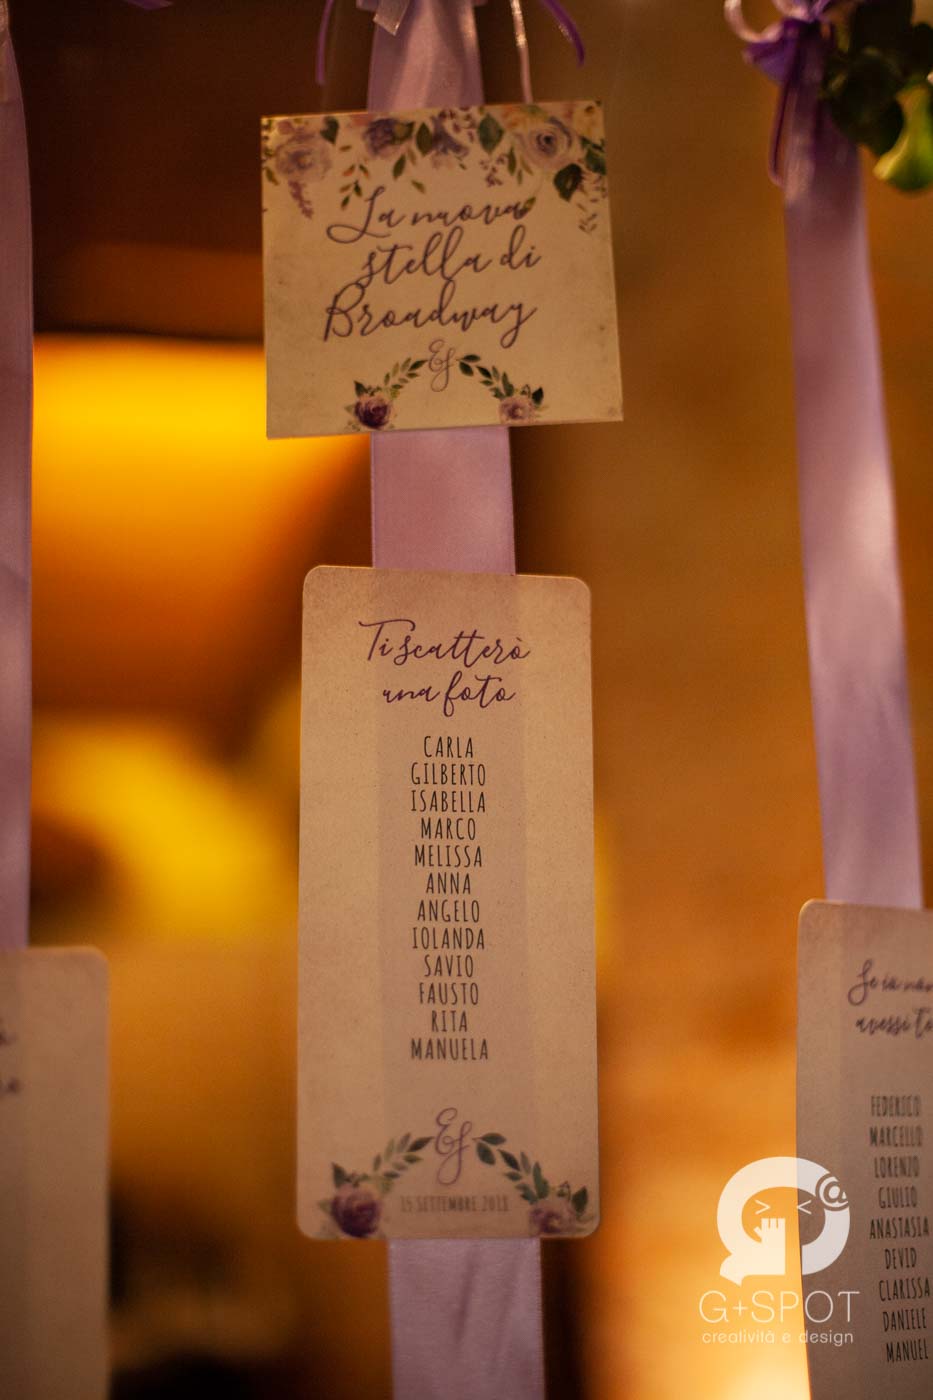 La nuova
stella di
Broadway
Ti scatterò
una foto
CARLA
GILBERTO
ISABELLA
MARCO
MELISSA
ANNA
ANGELO
IOLANDA
SAVIO
FAUSTO
RITA
MANUELA
15 SETTEMBRE 2018
Se io non
avessi te
FEDERICO
MARCELLO
LORENZO
GIULIO
ANASTASIA
DEVID
CLARISSA
DANIELE
MANUEL
G+SPOT
creatività e design